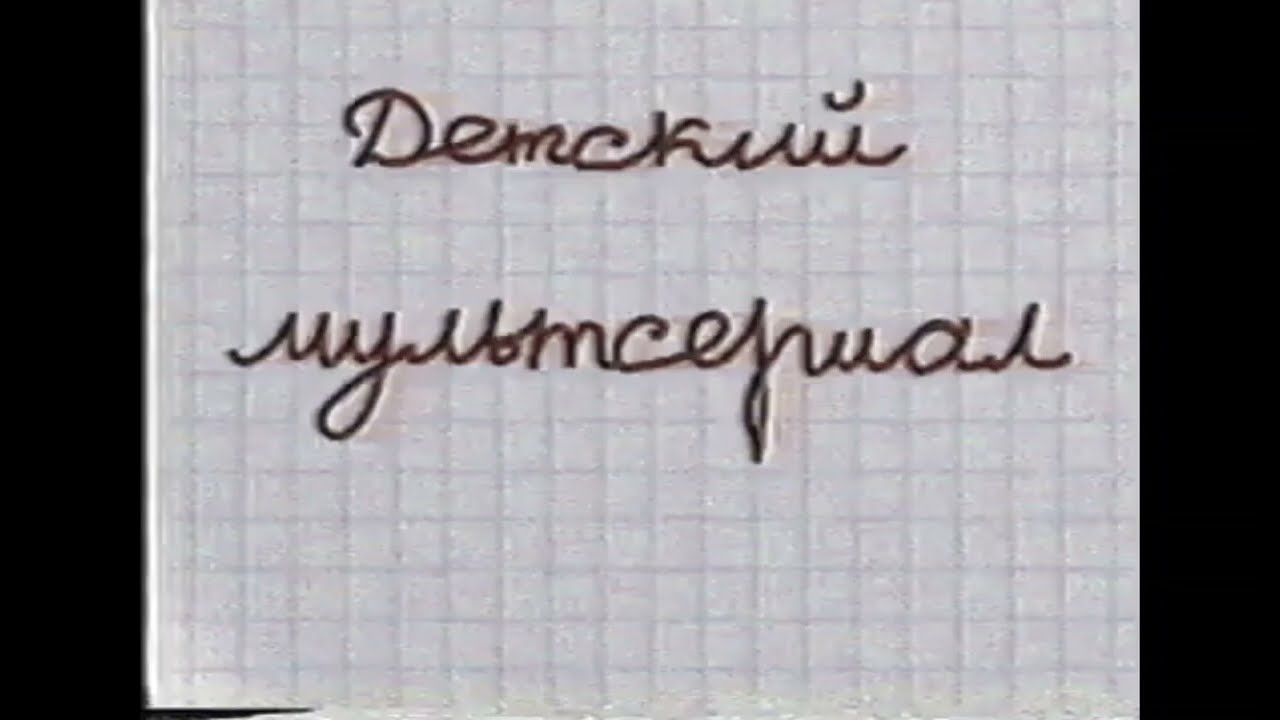 Детский
мультсериал